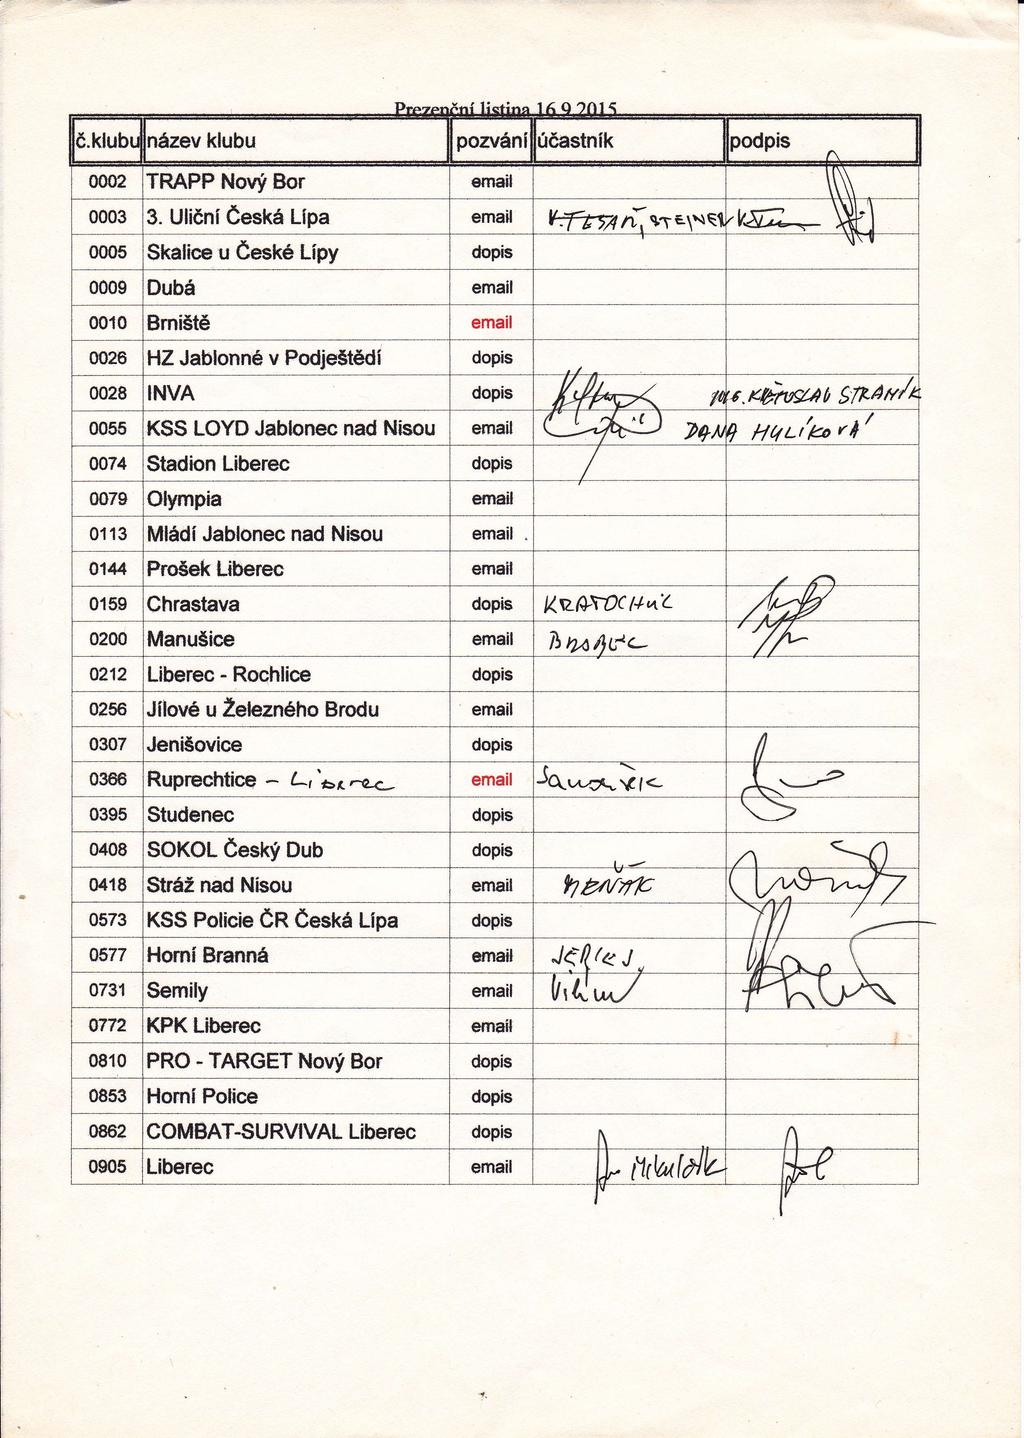 Prezenční listina 16.9.2015
č.klubu název klubu pozvání účastník podpis
0002 TRAPP Nový Bor email
0003 3. Uliční Česká Lípa email V.TESAŘ, STEINER
0005 Skalice u České Lípy dopis
0009 Dubá email
0010 Brniště email
0026 HZ Jablonné v Podještědí dopis
0028 INVA dopis ING. KVĚTOSLAV STRANÍK
0055 KSS LOYD Jablonec nad Nisou email DANA HYLÍKOVÁ
0074 Stadion Liberec dopis
0079 Olympia email
0113 Mládí Jablonec nad Nisou email
0144 Prošek Liberec email
0159 Chrastava dopis KRATOCHVÍL
0200 Manušice email
0212 Liberec - Rochlice dopis
0256 Jílové u Železného Brodu email
0307 Jenišovice dopis
0366 Ruprechtice - Liberec email
0395 Studenec dopis
0408 SOKOL Český Dub dopis
0418 Stráž nad Nisou email
0573 KSS Policie ČR Česká Lípa dopis
0577 Horní Branná email
0731 Semily email
0772 KPK Liberec email
0810 PRO - TARGET Nový Bor dopis
0853 Horní Police dopis
0862 COMBAT-SURVIVAL Liberec dopis
0905 Liberec email